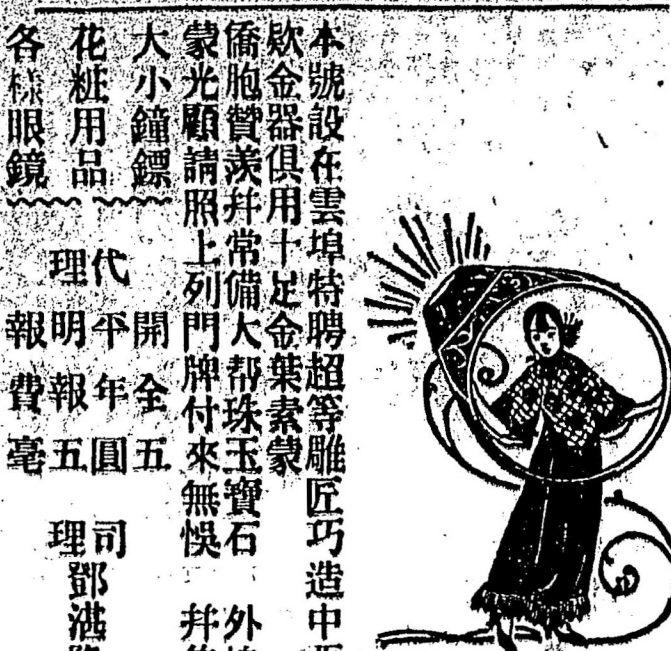 本號設在雲埠特聘超等雕匠巧造中
欵金器俱用十足金葉素蒙
僑胞贊羨幷常備大帮珠玉寶石 外
蒙光顧請照上列門牌付來無悞 幷
大小鐘鏢
花粧用品
各樣眼鏡
代理
開平明報
全年報費
五圓五毫
司理鄧湛